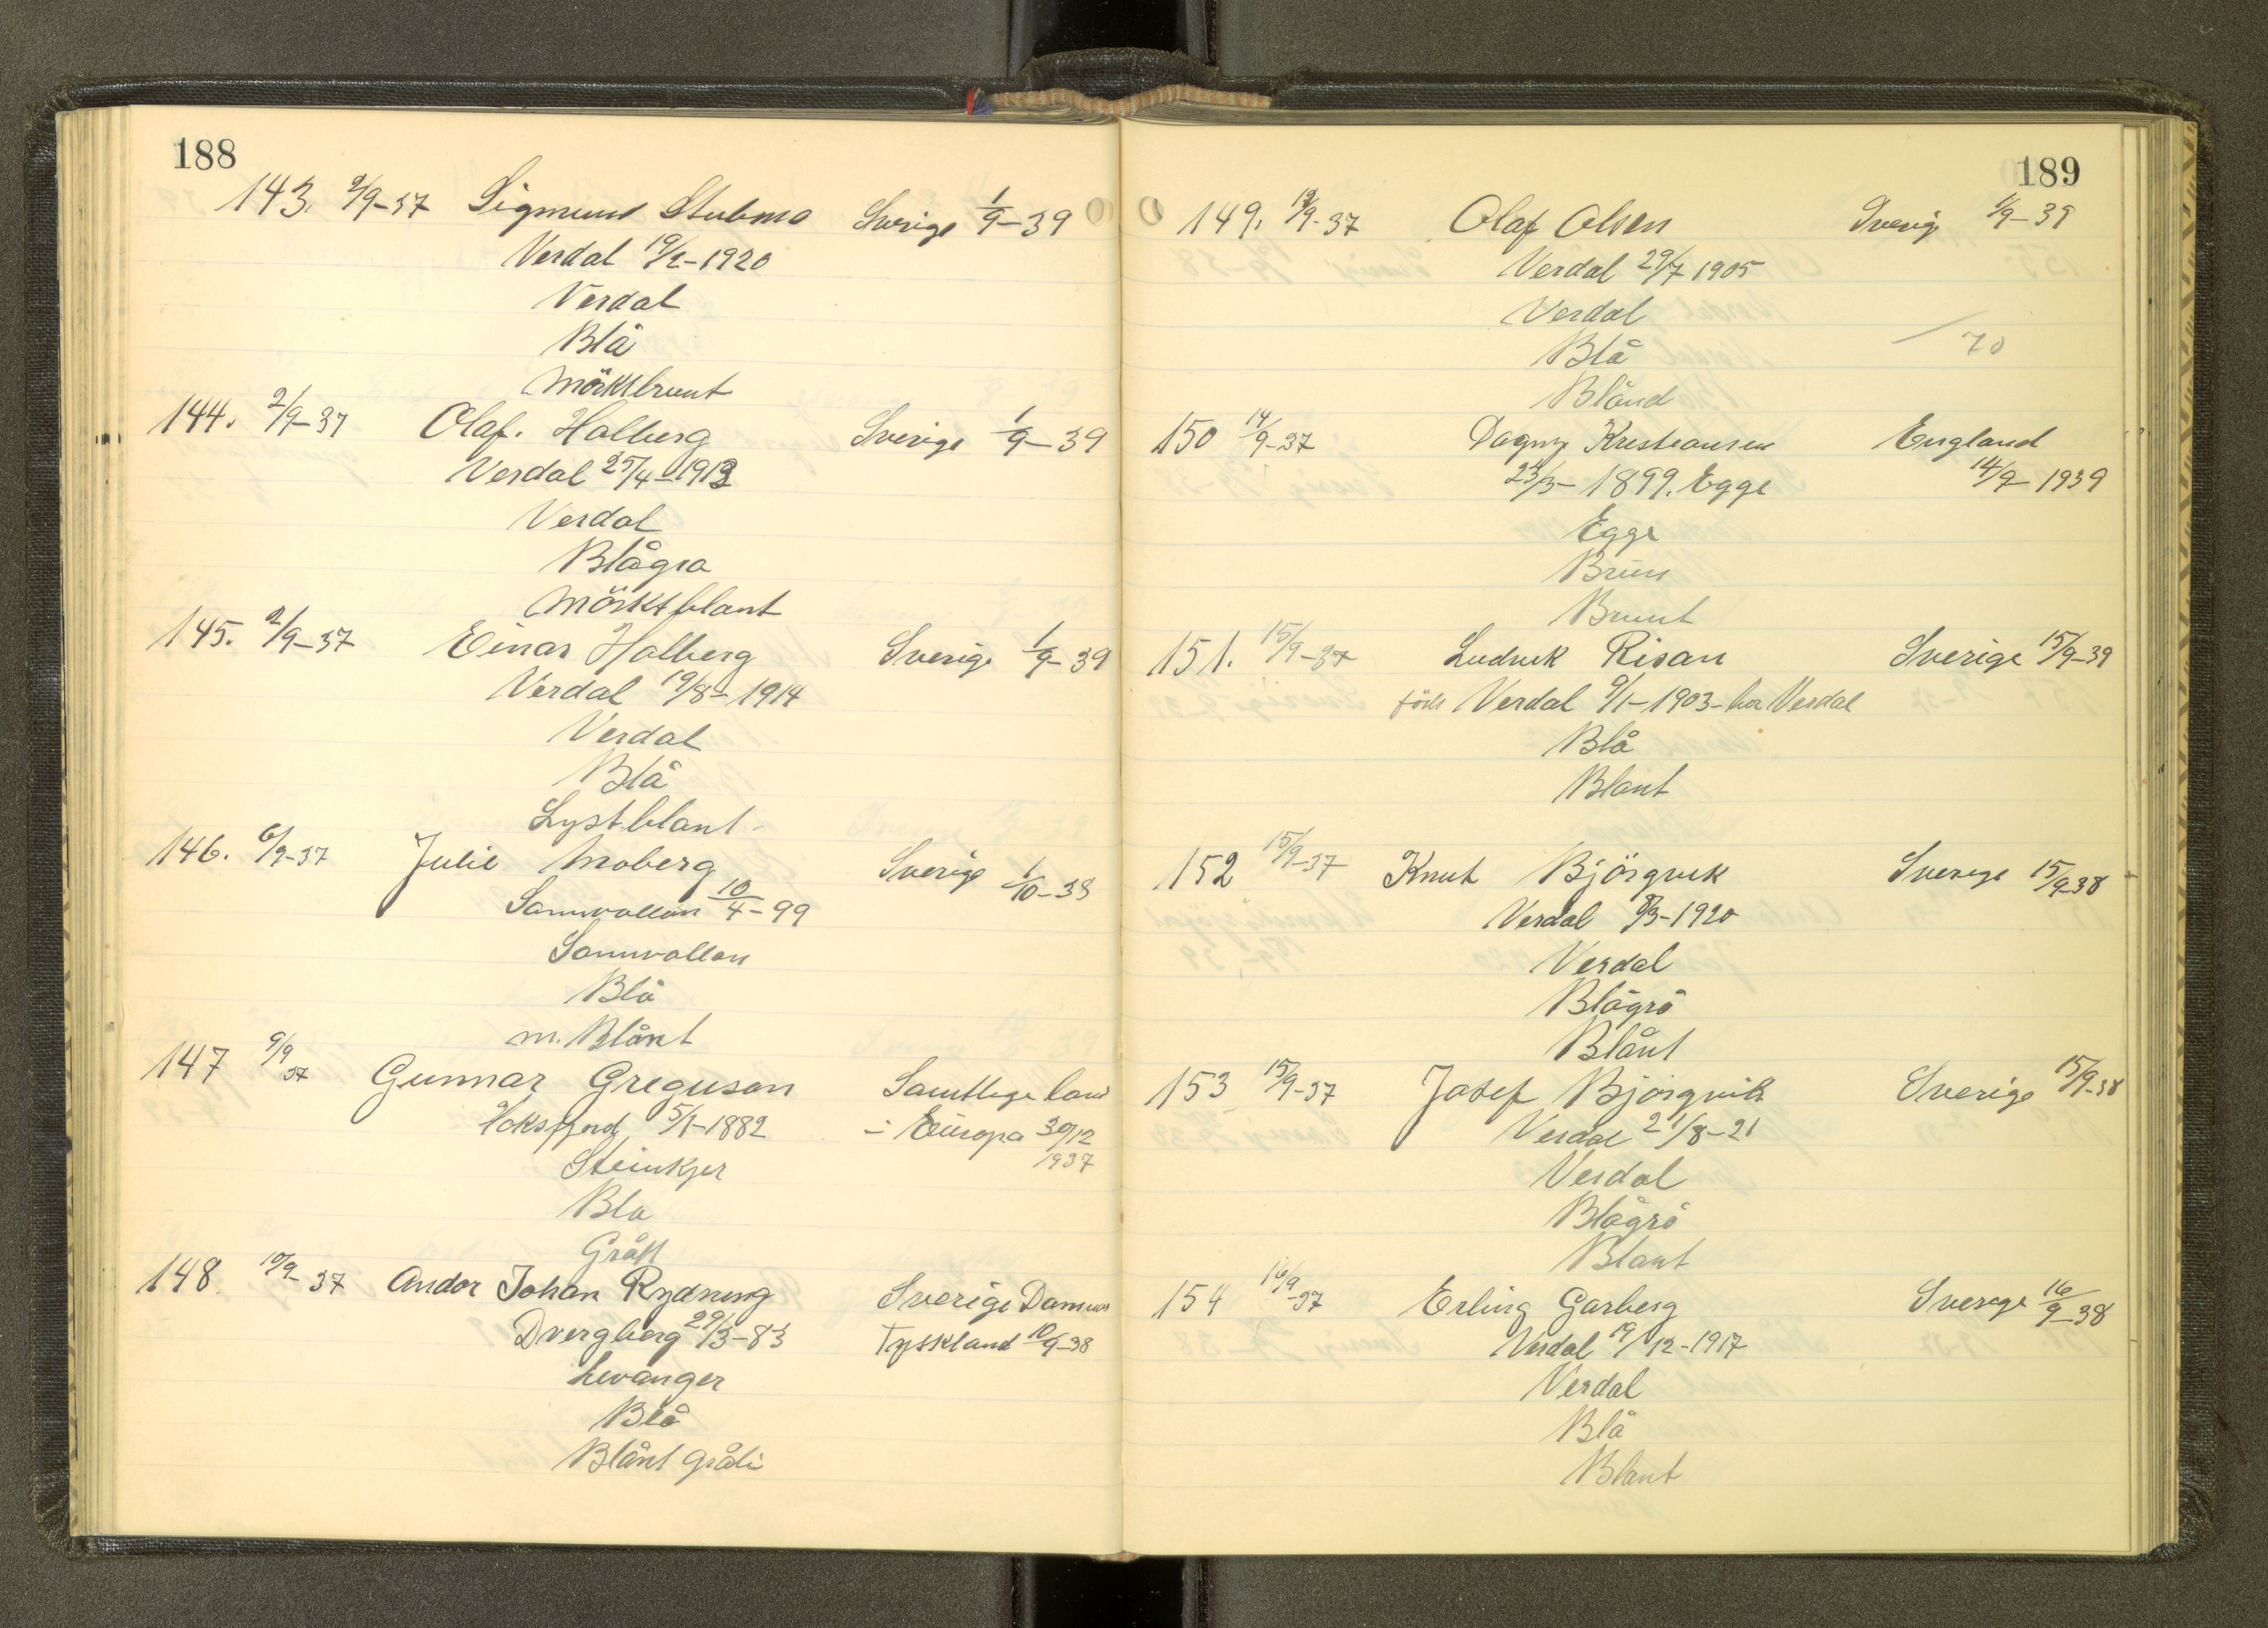 188
143. 2/9-37 Sigmund Stubmo Sverige 1/9-39
Verdal 19/2-1920
Verdal
Blå
Mörktbrunt
144. 2/9-37 Olaf. Halberg Sverige 1/9-39
Verdal 25/4-1913
Verdal
Blågra
Mörktblant
145. 2/9-37 Einar Halberg Sverige 1/9-39
Verdal 19/8-1914
Verdal
Blå
Lystblant-
146. 6/9-37 Julie Moberg Sverige 1/10-38
Sannvollan 10/4-99
Sannvollan
Blå
m. Blånt
147 9/9 37 Gunnar Greguson Samtlege land
5/1-1882 i Europa 30/12
Steinkjer 1937
Bla
Grått
148 10/9-37 Andor Johan Rydning Sverige Danm
Dvergberg 29/3-83 Tyskland 10/9-38
Levanger
Blå
Blånt
189
149. 9-37 Olaf Olsen Sverig 1/9-39
Verdal 29/7 1905
Verdal
Blå 70
Blånd
150 14/9-37 Dagny Kresteansen England
23/3-1899. Egge 14/9-1939
Egge
Brun
Brunt
151. 15/9-37 Ludvik Risan Sverige 15/9-39
föds Verdal 9/1-1903-bor Verdal
Blå
Blant
152 15/9-37 Knut Björgvik Sverige 15/9-38
Verdal 8/3-1920
Verdal
Blågrå
Blånt
153 15/9-37 Josef Björgvik Sverige 15/9-38
Verdal 21/8-21
Verdal
Blågrå
Blant
154 16/9-37 Erling Garberg Sverege 16/9-38
Verdal 19/12-1917
Verdal
Blå
Blant